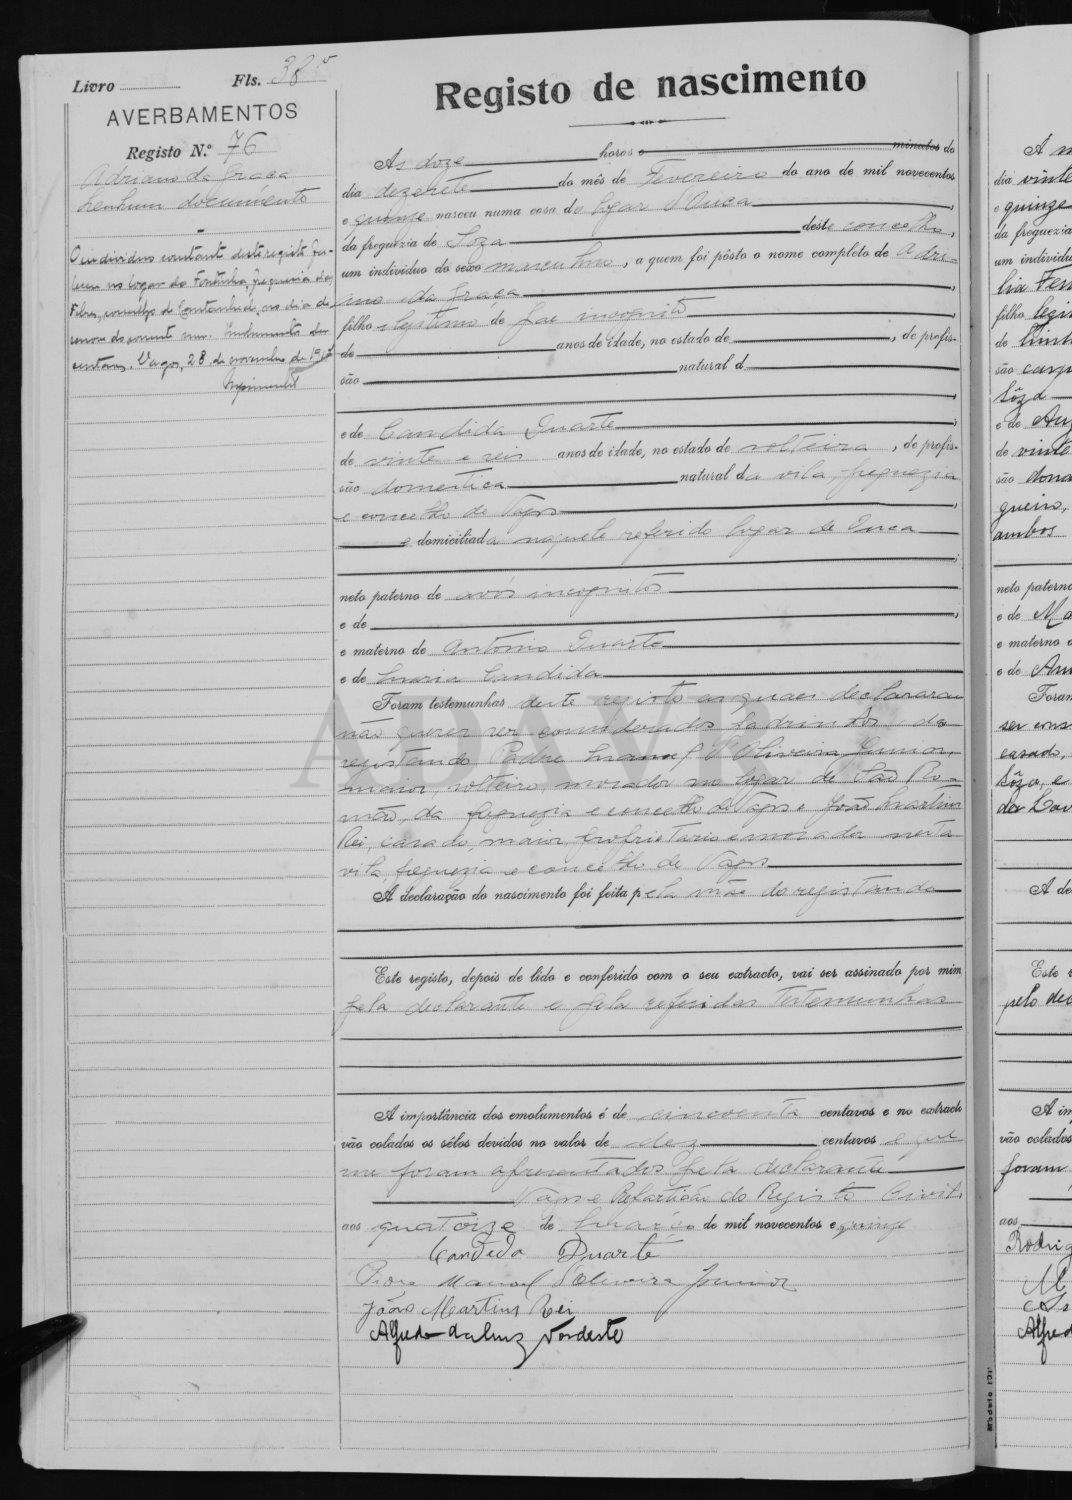 Livro Fls. 38v
AVERBAMENTOS
Registo N.º 76
Adriano da Graça
nenhum documento
O individuo constante deste registo fa-
leceu no logar da Fontinha, freguezia de
Febres, concelho de Cantanhede, no dia de
nove do corrente mez.
Vagos, 28 de novembro de
Registo de nascimento
As doze horas e minutos do
dia dezesete do mês de Fevereiro do ano de mil novecentos
e quinze nasceu numa casa do logar d'Ouca,
da freguezia de Soza deste concelho,
um individuo do sexo masculino, a quem foi pôsto o nome completo de Adri-
ano da Graça,
filho ilegitimo de pae incognito,
de anos de idade, no estado de, de profis-
são natural d
e de Candida Duarte,
de vinte e seis anos de idade, no estado de solteira, de profis-
são domestica natural da vila, freguezia
e concelho de Vagos,
e domiciliada naquele referido logar de Ouca
neto paterno de avós incognitos
e de
e materno de Antonio Duarte
e de Maria Candida
Foram testemunhas deste registo as quaes declararam
não querer ser considerados padrinhos do
registando Padre Manuel d'Oliveira Junior,
maior, solteiro, morador no logar de São Ro-
mão, da freguezia e concelho de Vagos e João Martins
Rei, casado, maior, proprietario e morador nesta
vila, freguezia e concelho de Vagos
A declaração do nascimento foi feita pela mãe do registando
Este registo, depois de lido e conferido com o seu extracto, vai ser assinado por mim
pela declarante e pelas referidas testemunhas
A importância dos emolumentos é de cincoenta centavos e no extracto
vão colados os sêlos devidos no valor de dez centavos e que
me foram apresentados pela declarante
Vagos e Repartição do Registo Civil
aos quatorze de Março de mil novecentos e quinze
Candida Duarte
Manoel d'Oliveira Junior
João Martins Rei
Alfredo da Luz Nordeste
ADAVR
A
dia vinte
e quinze
da freguezia
um individu
filho legi
de
são
Sôza
e de
de vinte
são
ambos
neto paterno
e de
e materno d
e de
Foram
ser cons
casado,
Sôza, e
A de
Este r
pelo dec
A im
vão colados
foram
aos
Rodrig
M
Alfred
Modelo